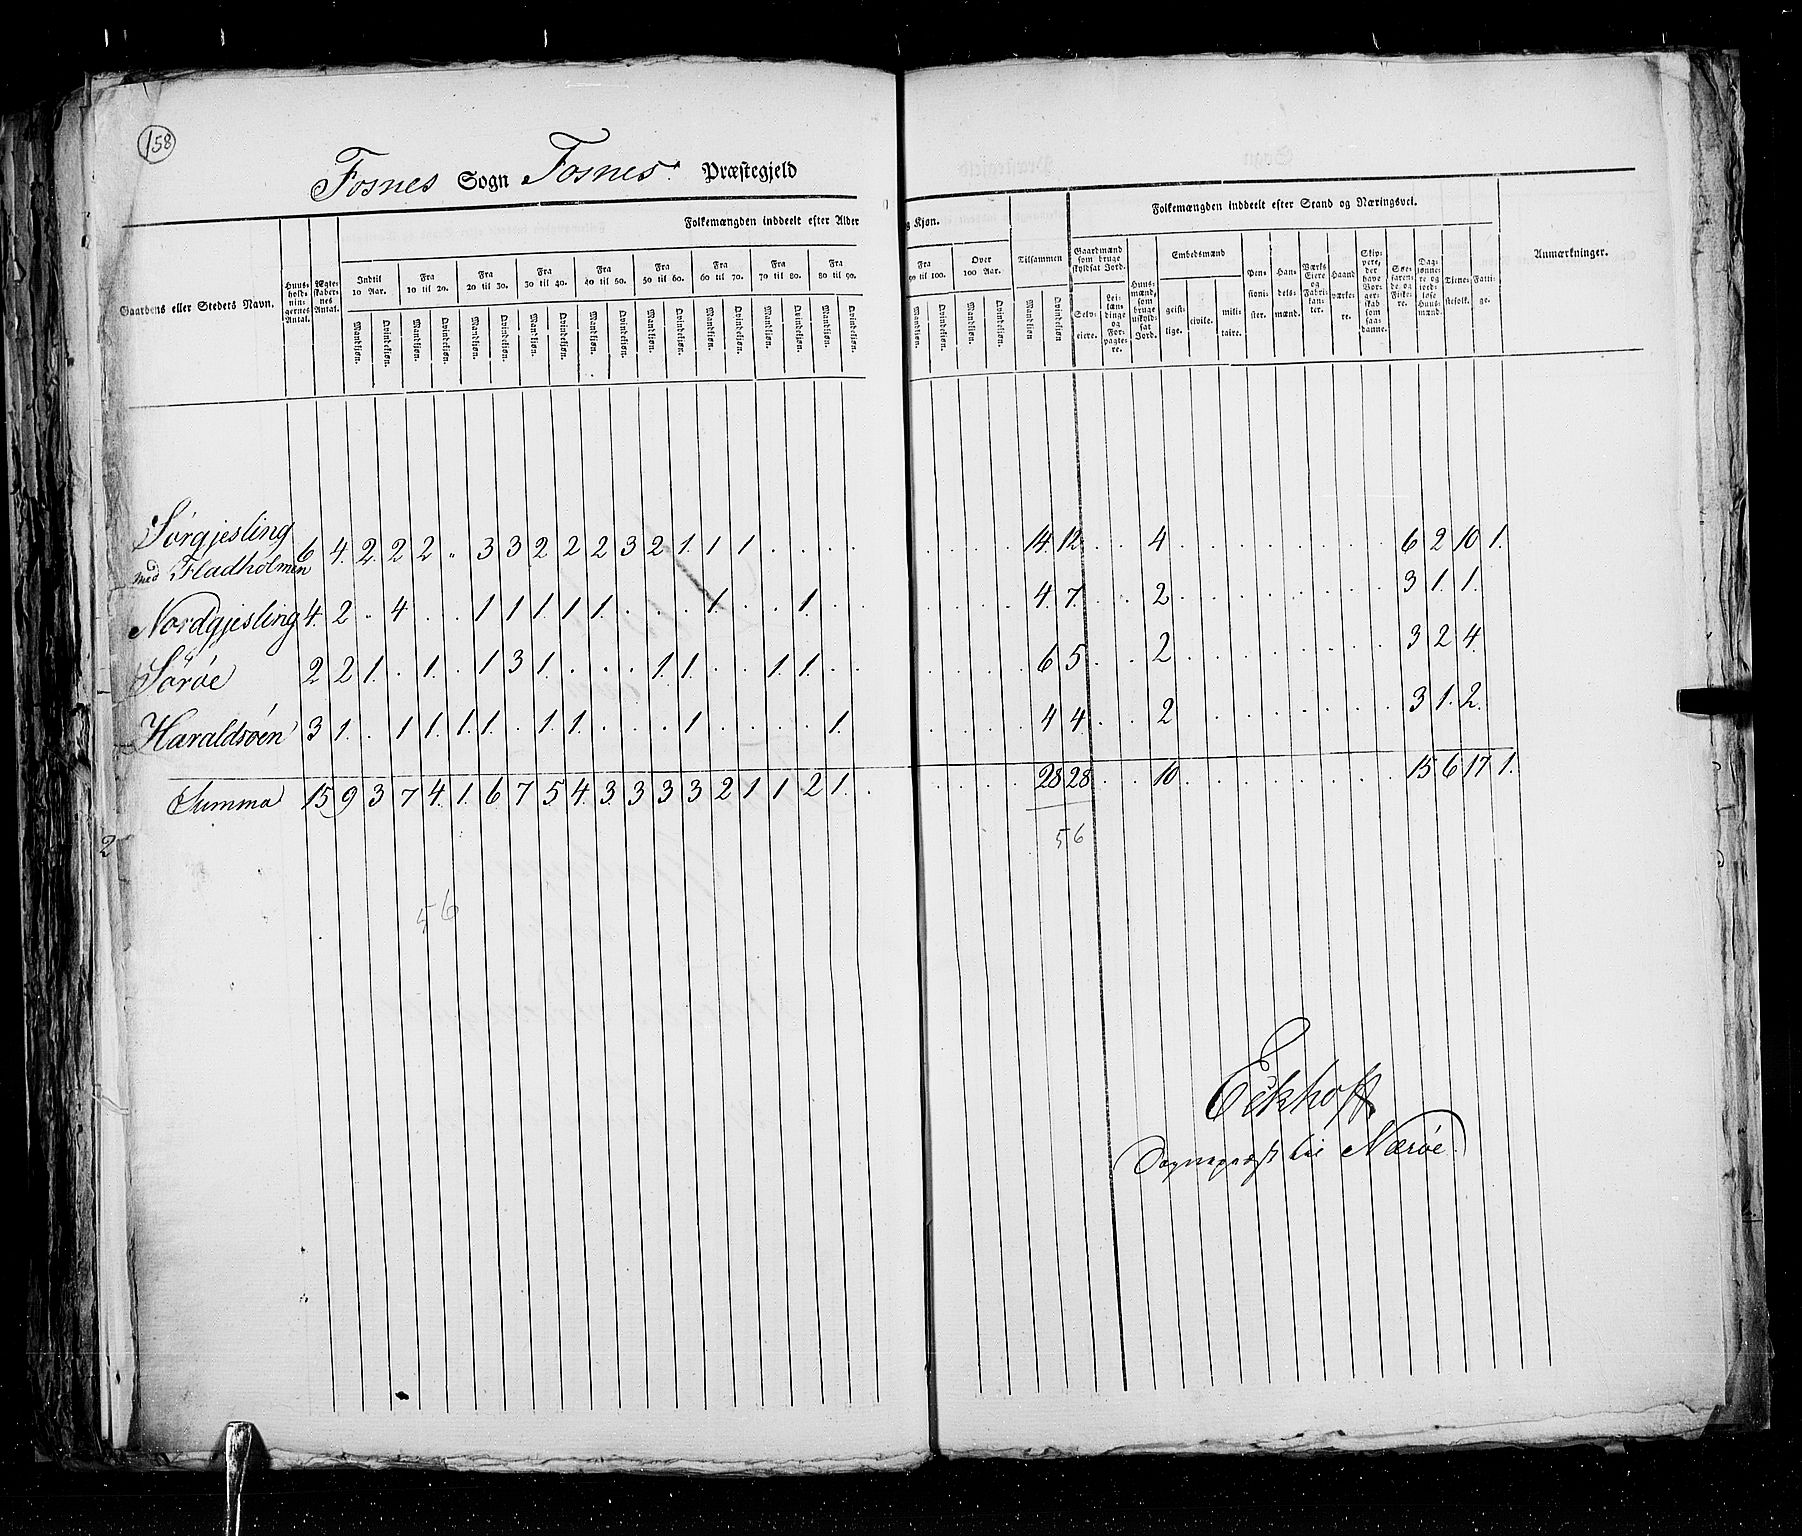 158
Fosnes Sogn Fosnes Præstegjeld
Folkemængden inddeelt efter Alder og Kjøn.
Folkemængden inddeelt efter Stand og Næringsvei.
Gaardens eller Stedets Navn.
Huusholdningernes Antal.
Ægteskabernes Antal.
Indtil 10 Aar. Fra 10 til 20. Fra 20 til 30. Fra 30 til 40. Fra 40 til 50. Fra 50 til 60. Fra 60 til 70. Fra 70 til 80. Fra 80 til 90. Fra 90 til 100. Over 100 Aar. Tilsammen
Mandkjøn. Qvindekjøn. Mandkjøn. Qvindekjøn. Mandkjøn. Qvindekjøn. Mandkjøn. Qvindekjøn. Mandkjøn. Qvindekjøn. Mandkjøn. Qvindekjøn. Mandkjøn. Qvindekjøn. Mandkjøn. Qvindekjøn. Mandkjøn. Qvindekjøn. Mandkjøn. Qvindekjøn. Mandkjøn. Qvindekjøn. Mandkjøn Qvindekjøn
Gaardmænd som bruge skyldsat Jord.
Selveiere. Leilændinge og Forpagtere.
Huusmænd, som bruge uskyldsat Jord.
Embedsmænd
geistlige. civile. militaire.
Pensionister.
Handelsmænd.
Værks Eiere og Fabrikanter.
Haandværkere.
Skippere, der have Borgerskab som saadanne.
Søefarende og Fiskere.
Daglønnere og jordløse Huusmænd.
Tjenestefolk.
Fattige.
Anmærkninger.
Sørgjesling
med Fladholmen 6 4. 2. 2 2 „ 3 3 2 2 2 3 2 1. 1 1 . . . . . . . . 14. 12. . . 4 . . . . . . . . 6 2 10 1.
Nordgjesling 4. 2 . 4 . . 1 1 1. 1 1. . . . 1. . . 1. . . . . . . 4. 7. . . 2 . . . . . . . . 3 1. 1.
Sørøe 2 2 1. . 1. . 1 3 1. . . . 1. 1. . . 1 1. . . . . . . 6 5 . . 2 . . . . . . . . 3 2 4.
Haraldsøen 3 1. . 1 1. 1. 1. . 1. 1. . . . 1 . . . . 1. . . . . . 4 4. . . 2 . . . . . . . . 3 1. 2.
Summa 15 9 3 7 4. 1. 6 7 5 4. 3 3 3 3 2 1 1 2 1. . . . . . 28 28 . . 10 . . . . . . . . 15 6 17 1.
56
2
56
Eckhoff
Sognepræst til Nærøe.